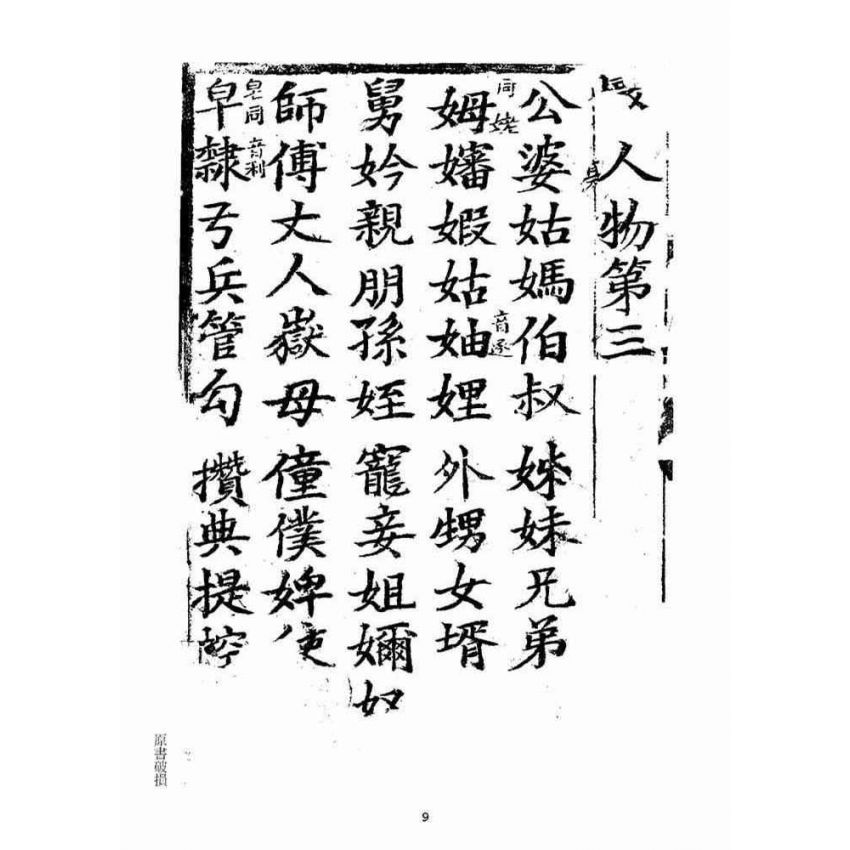 人物第三
公婆姑媽伯叔 姊妹兄弟
同姥
姆嬸嫂姑妯娌 外甥女壻
音逐
舅妗親朋孫姪 寵妾姐嬭奴
師傅丈人嶽母 僮僕婢使
皂同 音利
皁隸弓兵管勾 攢典提控
原書破損
9